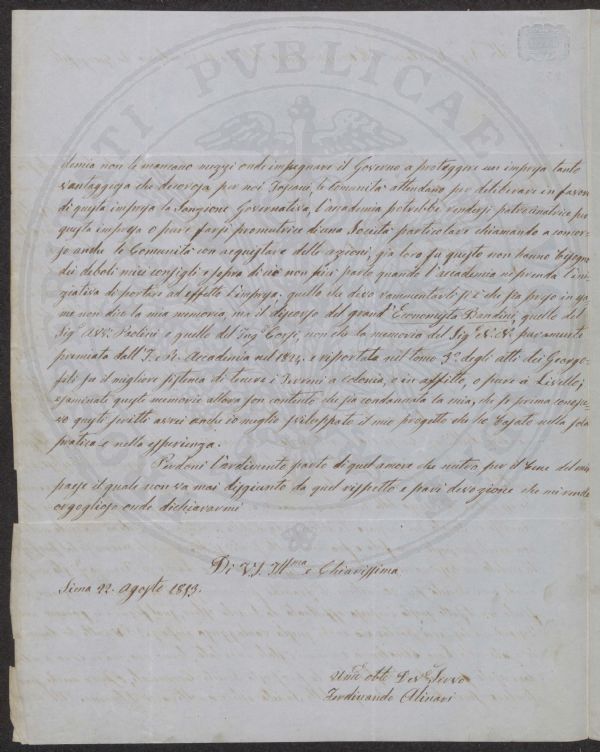 PVBLICAE
demia non le mancano mezzi onde impegnare il Governo a proteggere un impresa tanto
vantaggiosa che decorosa per noi Toscani, le Comunità attendano per deliberare in favore
di questa impresa la Sanzione Governativa, l'accademia potrebbe rendersi patrocinatrice per
questa impresa o pure farsi promotrice di una Società particolare chiamando a concor-
so anche le Comunità con acquistare delle azioni, già loro fu questo non hanno bisogno
dei deboli miei consigli e sopra di ciò non farò parte quando l'accademia riprenda l'ini-
ziativa di portare ad effetto l'impresa; quello che devo rammentarli si è che sia preso in esa-
me non dirò la mia memoria, ma il discorso del grand' Economista Bandini, quello del
Sigr Avv. Paolini e quello del Ingr Corsj, non che la memoria del Sigr N. N. puramente
premiata dall' I. e R. Accademia nel 1824. e riportata nel tomo 3o degli atti dei Georgo-
fili su il migliore sistema di tenere i Terreni a colonia, o in affitto, o pure a Livello;
esaminate queste memorie allora son contento che sia condannata la mia, che se prima conosce-
vo questi scritti avrei anche io meglio sviluppato il mio progetto che ho basato nella sola
pratica e nella esperienza.
Perdoni l'ardimento parto di quel amore che nutro per il bene del mio
paese il quale non va mai disgiunto da quel rispetto e pari devozione che mi rende
orgoglioso onde dichiararmi
Di V. S. Illma e Chiarissima
Siena 22. Agosto 1853.
Umo obbo Devo Servo
Ferdinando Alinari